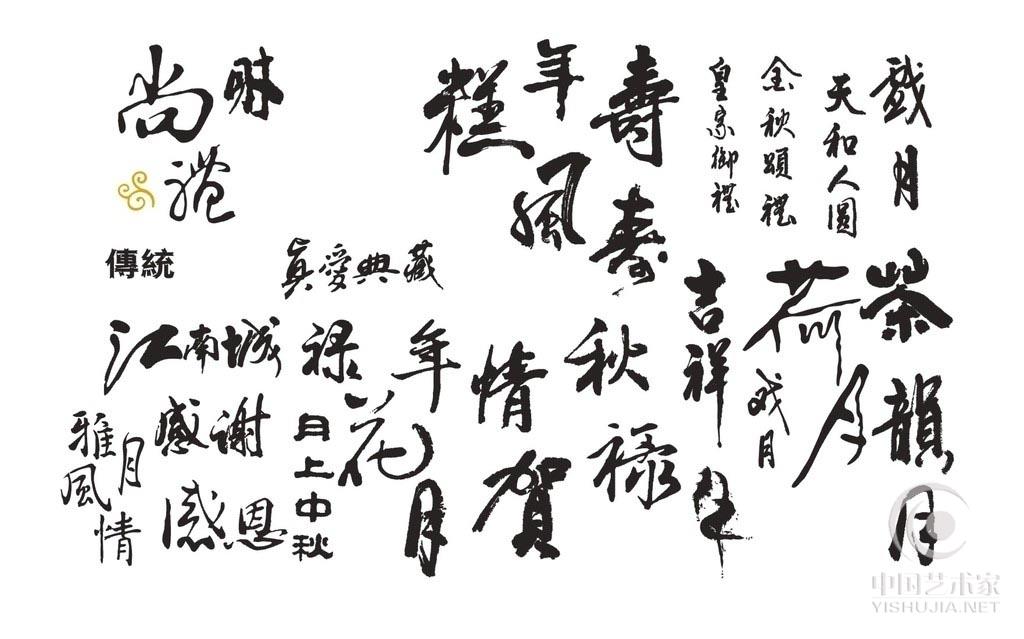 尚
財
禮
傳統
真愛典藏
年
糕
風
壽
壽
皇家御禮
金秋頌禮
天和人圓
戲月
茶韻月
荷月
戏月
吉祥
年
秋
禄
情
賀
年
花
月
禄
月上中秋
江南城
感謝
感恩
雅月
風情
中国艺术家
YISHUJIA.NET